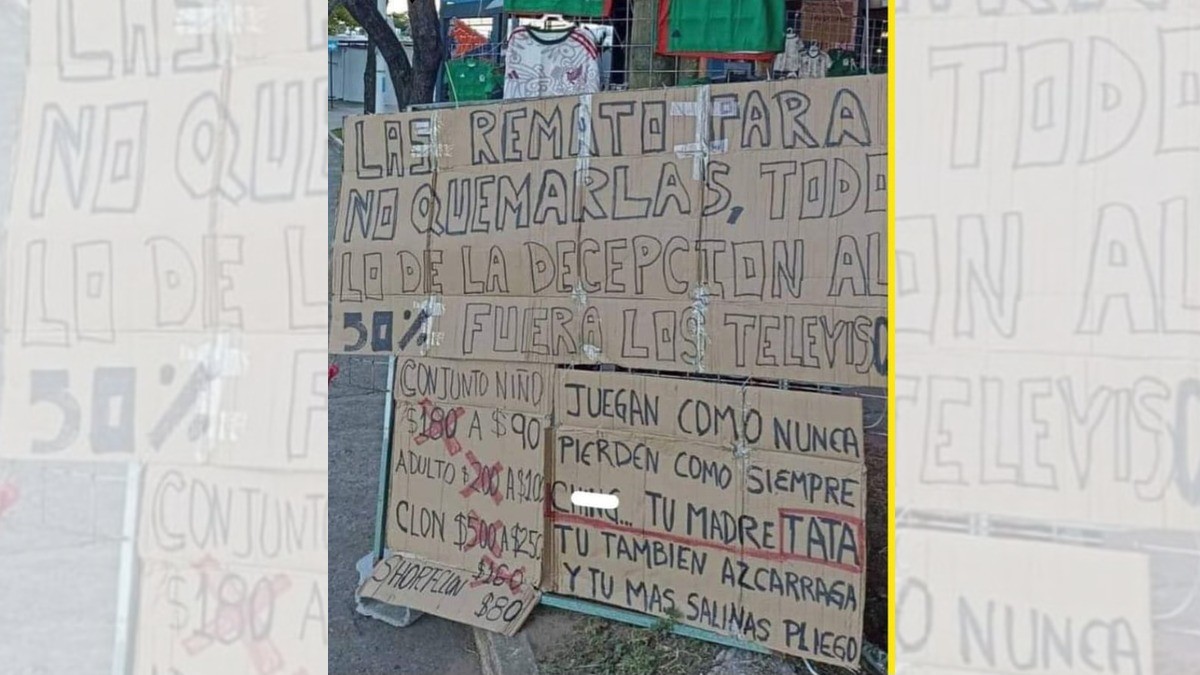 LAS REMATO PARA
NO QUEMARLAS, TODO
LO DE LA DECEPCION AL
50% FUERA LOS TELEVISO
CONJUNTO NIÑO
$180 A $90
ADULTO $200 A $100
CLON $500 A $250
SHORT CLON $160
$80
JUEGAN COMO NUNCA
PIERDEN COMO SIEMPRE
CHING... TU MADRE TATA
TU TAMBIEN AZCARRAGA
Y TU MAS SALINAS PLIEGO